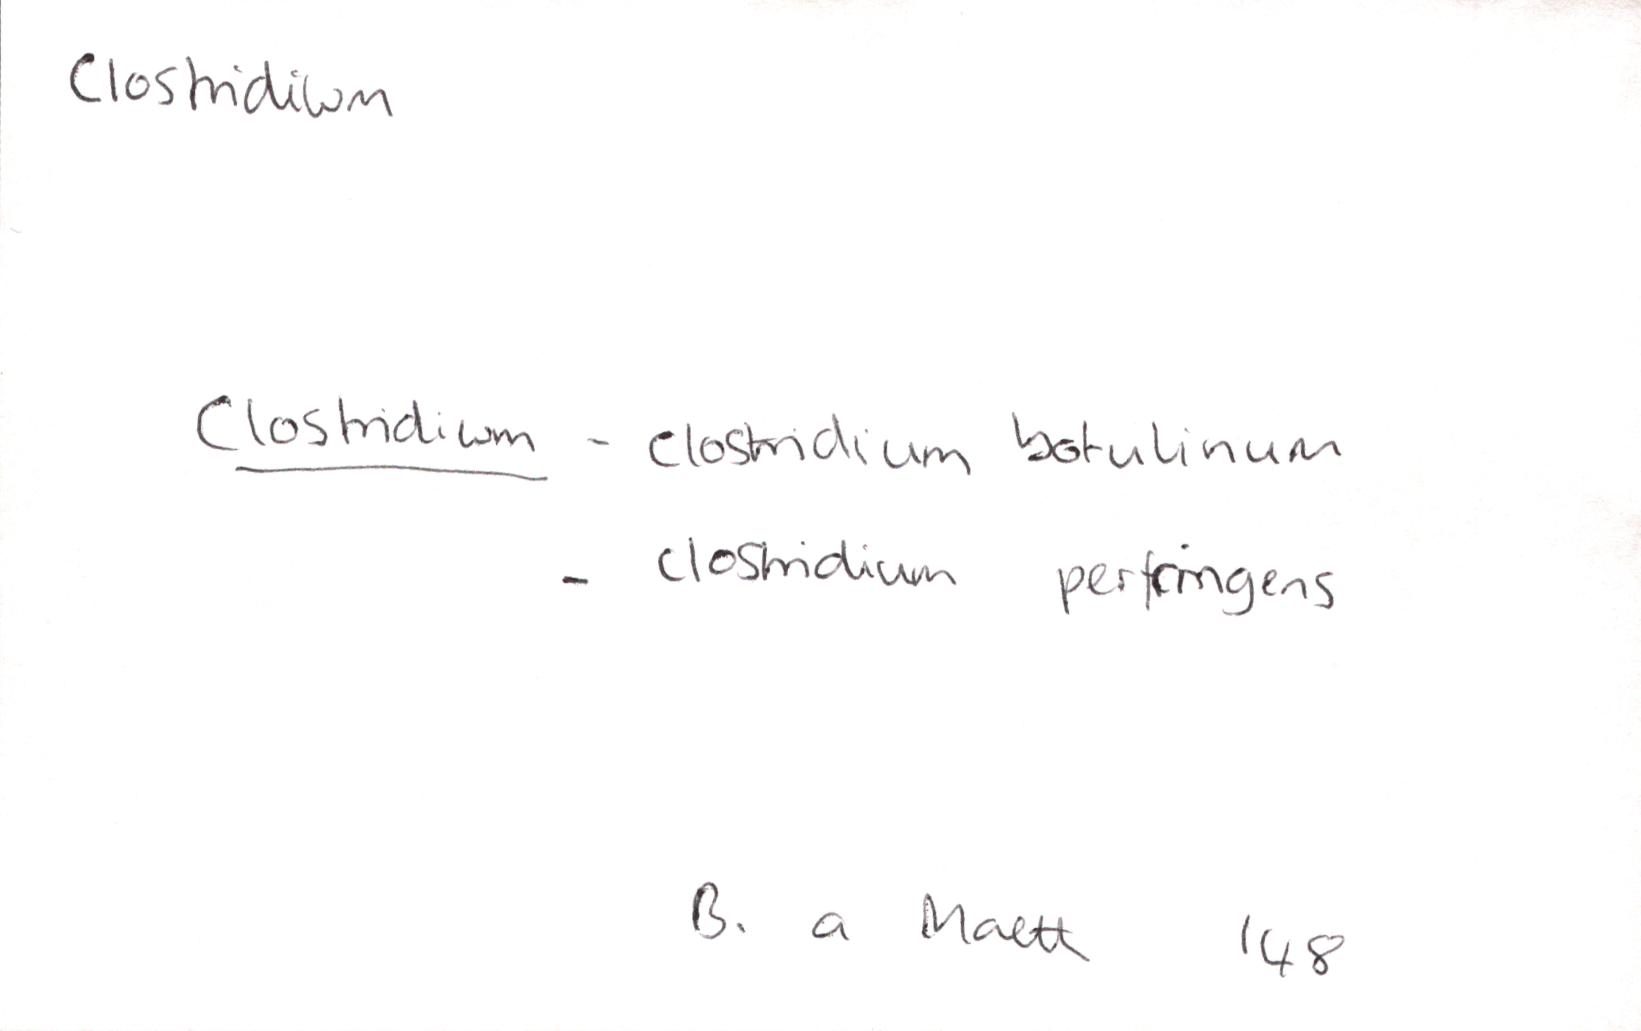 Clostridium
Clostridium - clostridium botulinum
- clostridium perfringens
B. a Maett 148